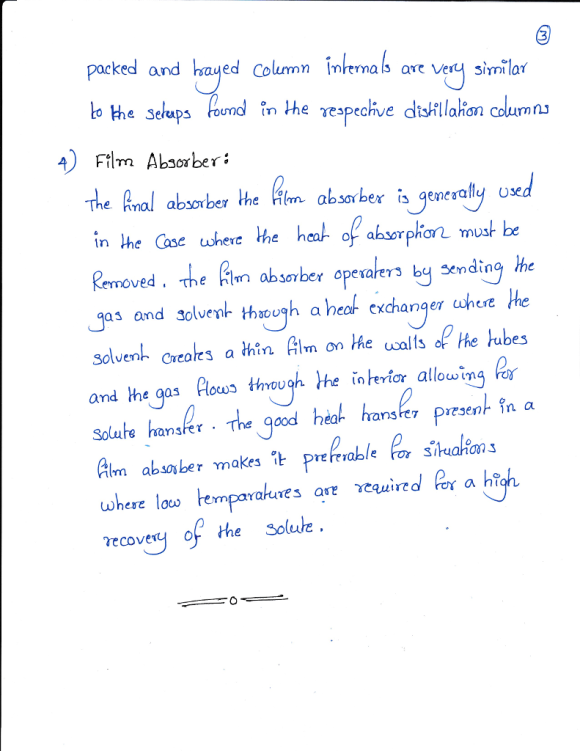 3
packed and trayed column internals are very similar
to the setups found in the respective distillation columns
4) Film Absorber:
The final absorber the film absorber is generally used
in the case where the heat of absorption must be
Removed. the film absorber operaters by sending the
gas and solvent through a heat exchanger where the
solvent creates a thin film on the walls of the tubes
and the gas flows through the interior allowing for
solute transfer. The good heat transfer present in a
film absorber makes it preferable for situations
where low temparatures are required for a high
recovery of the solute.